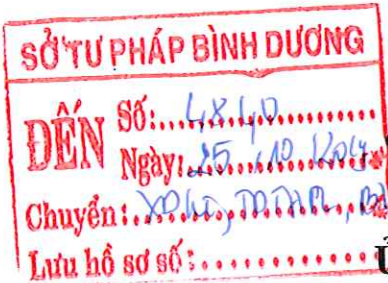 SỞ TƯ PHÁP BÌNH DƯƠNG
ĐẾN
Số:.................
Ngày:..25../10.................
Chuyển:.................
Lưu hồ sơ số:.............